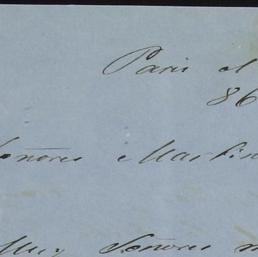 Paris el
86
Señores Martin
Muy Señores m